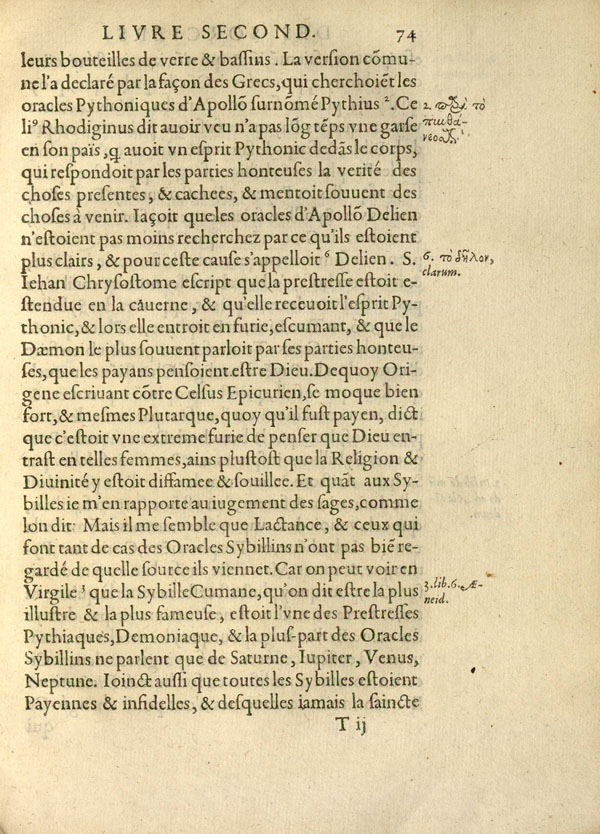 LIVRE SECOND. 74
leurs bouteilles de verre & bassins. La version cõmu-
ne l'a declaré par la façon des Grecs, qui cherchoiẽt les
oracles Pythoniques d'Apollõ surnõmé Pythius 2. Ce
li⁹ Rhodiginus dit auoir veu n'a pas lõg tẽps vne garse
en son païs, q̃ auoit vn esprit Pythonic dedãs le corps,
qui respondoit par les parties honteuses la verité des
choses presentes, & cachees, & mentoit souuent des
choses à venir. Iaçoit que les oracles d'Apollõ Delien
n'estoient pas moins recherchez par ce qu'ils estoient
plus clairs, & pour ceste cause s'appelloit 6 Delien. S.
Iehan Chrysostome escript que la prestresse estoit e-
stendue en la cauerne, & qu'elle receuoit l'esprit Py-
thonic, & lors elle entroit en furie, escumant, & que le
Dæmon le plus souuent parloit par ses parties honteu-
ses, que les payans pensoient estre Dieu. Dequoy Ori-
gene escriuant cõtre Celsus Epicurien, se moque bien
fort, & mesmes Plutarque, quoy qu'il fust payen, dict
que c'estoit vne extreme furie de penser que Dieu en-
trast en telles femmes, ains plustost que la Religion &
Diuinité y estoit diffamee & souillee. Et quãt aux Sy-
billes ie m'en rapporte au iugement des sages, comme
lon dit: Mais il me semble que Lactance, & ceux qui
font tant de cas des Oracles Sybillins n'ont pas biẽ re-
gardé de quelle source ils viennet. Car on peut voir en
Virgile 3 que la Sybille Cumane, qu'on dit estre la plus
illustre & la plus fameuse, estoit l'vne des Prestresses
Pythiaques, Demoniaque, & la plus-part des Oracles
Sybillins ne parlent que de Saturne, Iupiter, Venus,
Neptune. Ioinct aussi que toutes les Sybilles estoient
Payennes & infidelles, & desquelles iamais la saincte
T ij
2. τὸ
6. τὸ δῆλον,
clarum.
3. lib. 6. Æ-
neid.